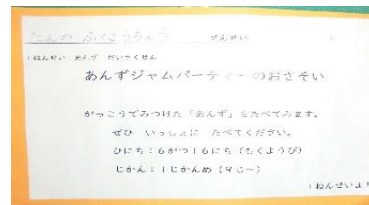 ふくこうちょう せんせい
１ねんせい あんず だいさくせん
あんずジャムパーティーのおさそい
がっこうでみつけた「あんず」をたべてみます。
ぜひ いっしょに たべてください。
ひにち：６がつ１６にち（もくようび）
じかん：１じかんめ（９じ〜）
１ねんせいより